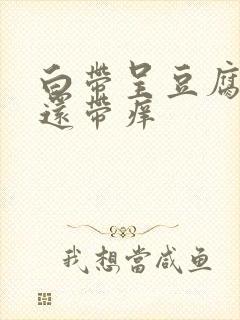 白带呈豆腐
還带痒
我想當咸鱼